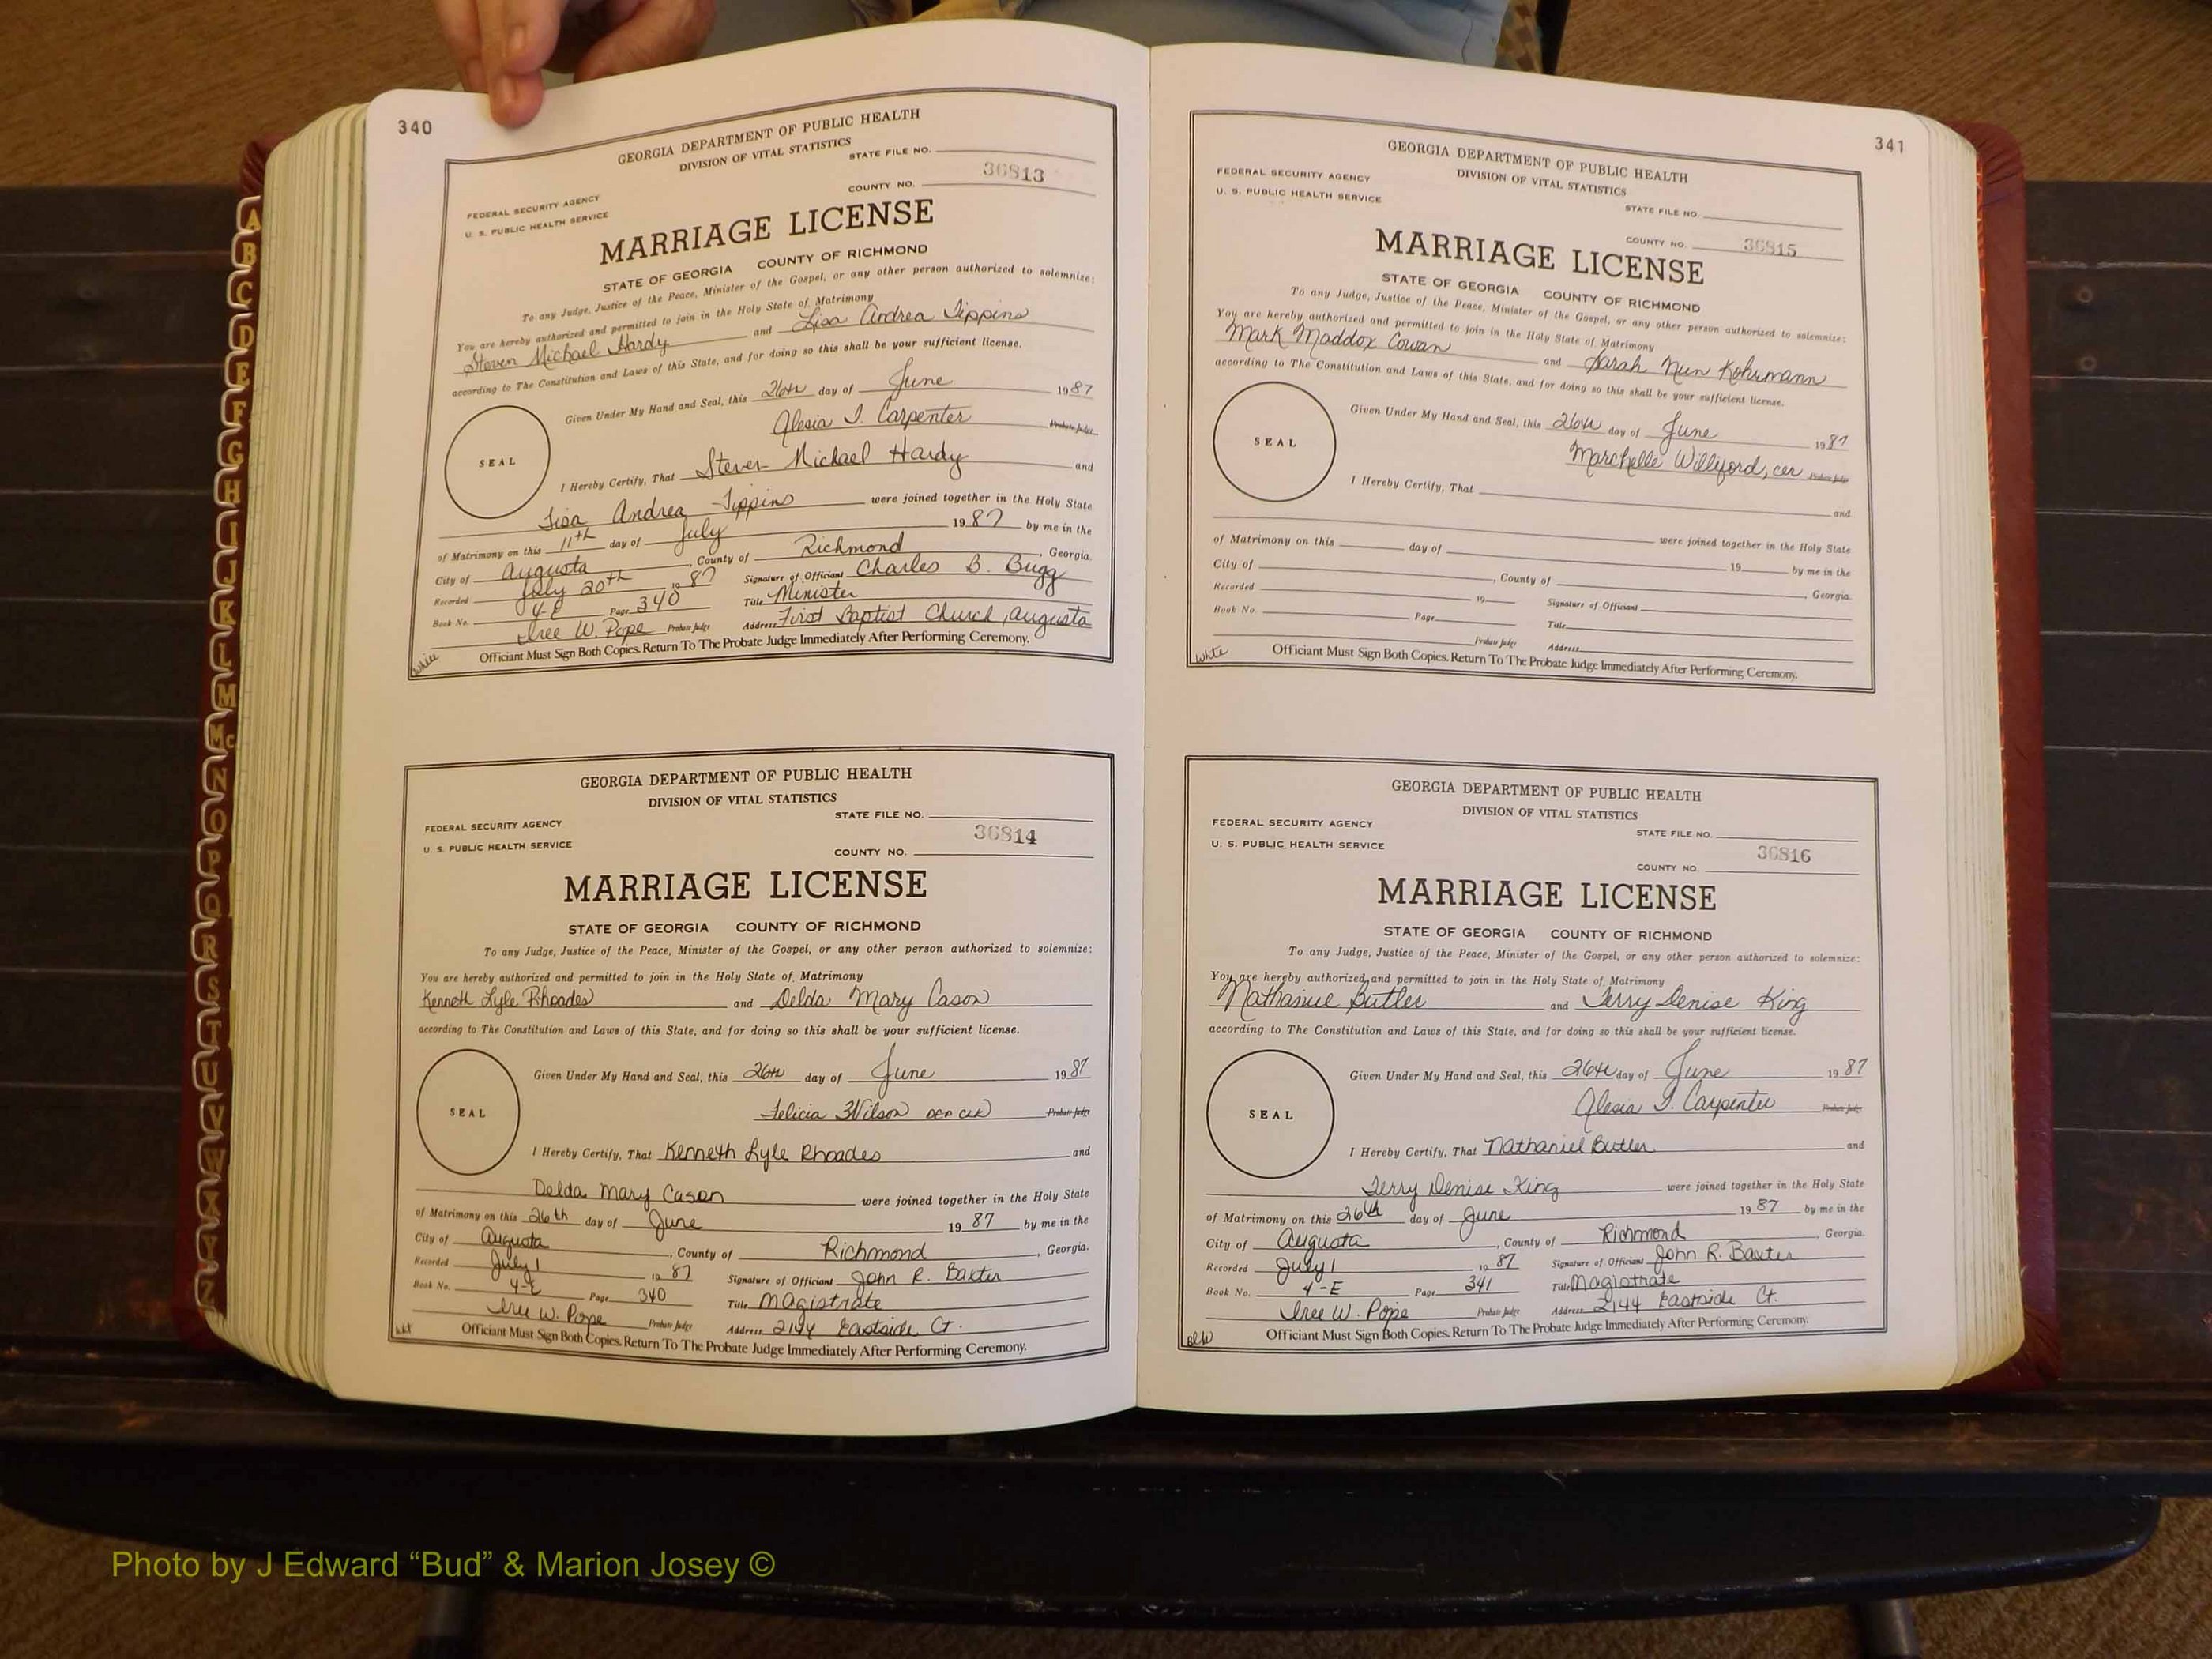 340
GEORGIA DEPARTMENT OF PUBLIC HEALTH
DIVISION OF VITAL STATISTICS
STATE FILE NO.
36813
COUNTY NO.
FEDERAL SECURITY AGENCY
U. S. PUBLIC HEALTH SERVICE
MARRIAGE LICENSE
STATE OF GEORGIA COUNTY OF RICHMOND
To any Judge, Justice of the Peace, Minister of the Gospel, or any other person authorized to solemnize:
You are hereby authorized and permitted to join in the Holy State of Matrimony
Steven Michael Hardy and Lisa Andrea Tippins
according to The Constitution and Laws of this State, and for doing so this shall be your sufficient license.
Given Under My Hand and Seal, this 26th day of June 1987
Alesia T. Carpenter Probate Judge
SEAL
I Hereby Certify, That Steven Michael Hardy and
Lisa Andrea Tippins were joined together in the Holy State
of Matrimony on this 11th day of July 1987 by me in the
City of Augusta, County of Richmond, Georgia.
Recorded July 20th 1987 Signature of Officiant Charles B. Bugg
Book No. 4-E Page 340 Title Minister
Iree W. Pope Probate Judge Address First Baptist Church, Augusta
Officiant Must Sign Both Copies. Return To The Probate Judge Immediately After Performing Ceremony.
White
GEORGIA DEPARTMENT OF PUBLIC HEALTH
DIVISION OF VITAL STATISTICS
STATE FILE NO.
36814
COUNTY NO.
FEDERAL SECURITY AGENCY
U. S. PUBLIC HEALTH SERVICE
MARRIAGE LICENSE
STATE OF GEORGIA COUNTY OF RICHMOND
To any Judge, Justice of the Peace, Minister of the Gospel, or any other person authorized to solemnize:
You are hereby authorized and permitted to join in the Holy State of Matrimony
Kenneth Lyle Rhoades and Delda Mary Cason
according to The Constitution and Laws of this State, and for doing so this shall be your sufficient license.
Given Under My Hand and Seal, this 26th day of June 1987
Felicia Wilson DEP CLK Probate Judge
SEAL
I Hereby Certify, That Kenneth Lyle Rhoades and
Delda Mary Cason were joined together in the Holy State
of Matrimony on this 26th day of June 1987 by me in the
City of Augusta, County of Richmond, Georgia.
Recorded July 1 1987 Signature of Officiant John R. Baxter
Book No. 4-E Page 340 Title Magistrate
Iree W. Pope Probate Judge Address 2144 Eastside Ct.
Officiant Must Sign Both Copies. Return To The Probate Judge Immediately After Performing Ceremony.
341
GEORGIA DEPARTMENT OF PUBLIC HEALTH
DIVISION OF VITAL STATISTICS
FEDERAL SECURITY AGENCY
U. S. PUBLIC HEALTH SERVICE
STATE FILE NO.
COUNTY NO. 36815
MARRIAGE LICENSE
STATE OF GEORGIA COUNTY OF RICHMOND
To any Judge, Justice of the Peace, Minister of the Gospel, or any other person authorized to solemnize:
You are hereby authorized and permitted to join in the Holy State of Matrimony
Mark Maddox Cowan and Sarah Nun Kohrmann
according to The Constitution and Laws of this State, and for doing so this shall be your sufficient license.
Given Under My Hand and Seal, this 26th day of June 1987
Marchelle Williford, Probate Judge
SEAL
I Hereby Certify, That and
were joined together in the Holy State
of Matrimony on this day of 19 by me in the
City of , County of , Georgia.
Recorded 19 Signature of Officiant
Book No. Page Title
Probate Judge Address
White
Officiant Must Sign Both Copies. Return To The Probate Judge Immediately After Performing Ceremony.
GEORGIA DEPARTMENT OF PUBLIC HEALTH
DIVISION OF VITAL STATISTICS
FEDERAL SECURITY AGENCY
STATE FILE NO.
U. S. PUBLIC HEALTH SERVICE
36816
COUNTY NO.
MARRIAGE LICENSE
STATE OF GEORGIA COUNTY OF RICHMOND
To any Judge, Justice of the Peace, Minister of the Gospel, or any other person authorized to solemnize:
You are hereby authorized and permitted to join in the Holy State of Matrimony
Nathaniel Butler and Terry Denise King
according to The Constitution and Laws of this State, and for doing so this shall be your sufficient license.
Given Under My Hand and Seal, this 26th day of June 1987
Alesia T. Carpenter Probate Judge
SEAL
I Hereby Certify, That Nathaniel Butler and
Terry Denise King were joined together in the Holy State
of Matrimony on this 26th day of June 1987 by me in the
City of Augusta, County of Richmond, Georgia.
Recorded July 1 1987 Signature of Officiant John R. Baxter
Book No. 4-E Page 341 Title Magistrate
Iree W. Pope Probate Judge Address 2144 Eastside Ct.
Officiant Must Sign Both Copies. Return To The Probate Judge Immediately After Performing Ceremony.
A
B
C
D
E
F
G
H
I
J
K
L
M
Mc
N
O
P
Q
R
S
T
U
V
W
X
Y
Z
Photo by J Edward “Bud” & Marion Josey ©